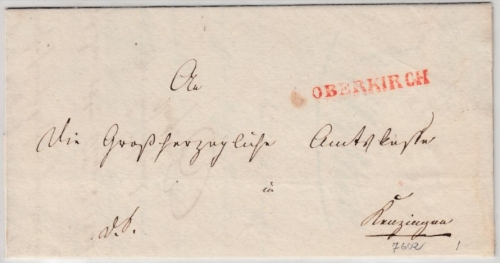 An
OBERKIRCH
Die Großherzogliche Amtskasse
in
d. S.
Kenzingen
7602